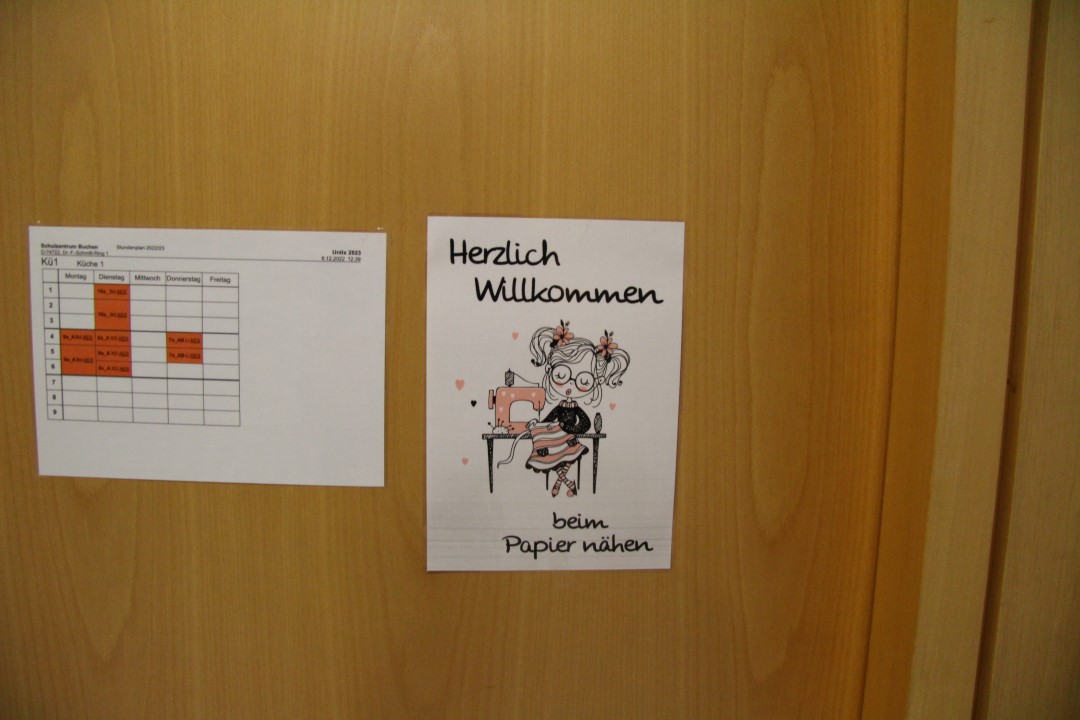 Schulzentrum Buchen Stundenplan 2022/23 Untis 2023
D-74722, Dr.-F.-Schmitt-Ring 1 6.12.2022 12:39
Kü1 Küche 1
Montag Dienstag Mittwoch Donnerstag Freitag
1
2
3
4
5
6
7
8
9
Herzlich
Willkommen
beim
Papier nähen